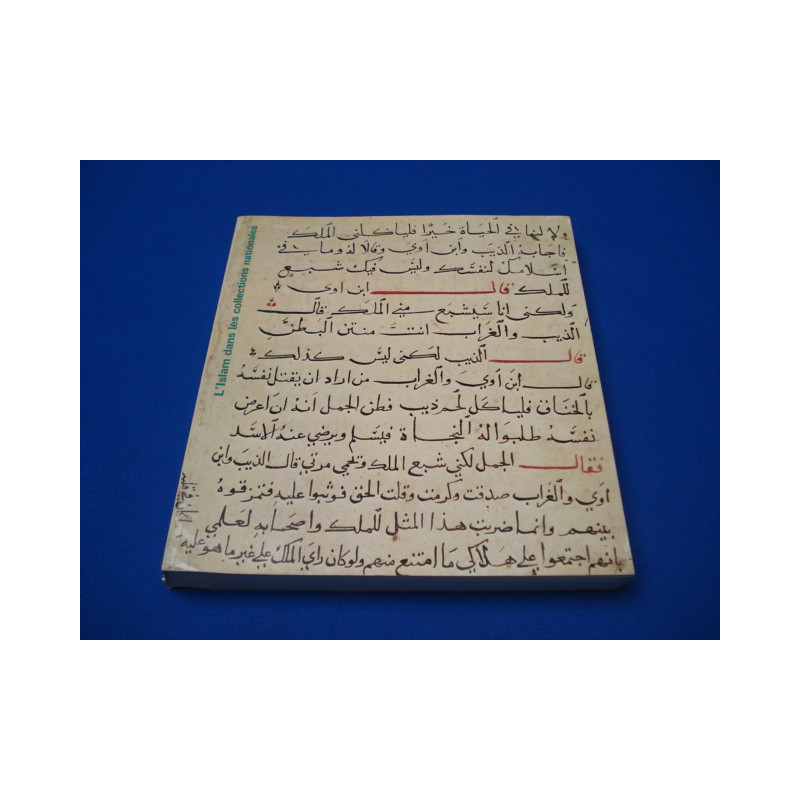 L'Islam dans les collections nationales
ولا لنا في الحياة خيرا فلياكلني الملك
فاجابه الذيب وابن اوي وقالا له وما في
اكلك لنفسك وليس فيك شبع
للملك قال ابن اوي
ولكني انا سيشبع مني الملك قال
الذيب والغراب انت منتن البطن
قال الذيب لكني ليس كذلك
قال ابن اوي والغراب من اراد ان يقتل نفسه
بالخناق فلياكل لحم ذيب فظن الجمل انه ان اعرض
نفسه طلبوا له النجاة فيسلم ويرضي عنه الاسد
فقال الجمل لكني شبع الملك ولحمي مرتي قال الذيب وابن
اوي والغراب صدقت وكرمت وقلت الحق فوثبوا عليه فتمزقوه
بينهم وانما ضربت هذا المثل للملك واصحابه لعلمي
بانهم اجتمعوا علي هلاكي ما امتنع منهم ولو كان راي الملك علي غير ما هو عليه